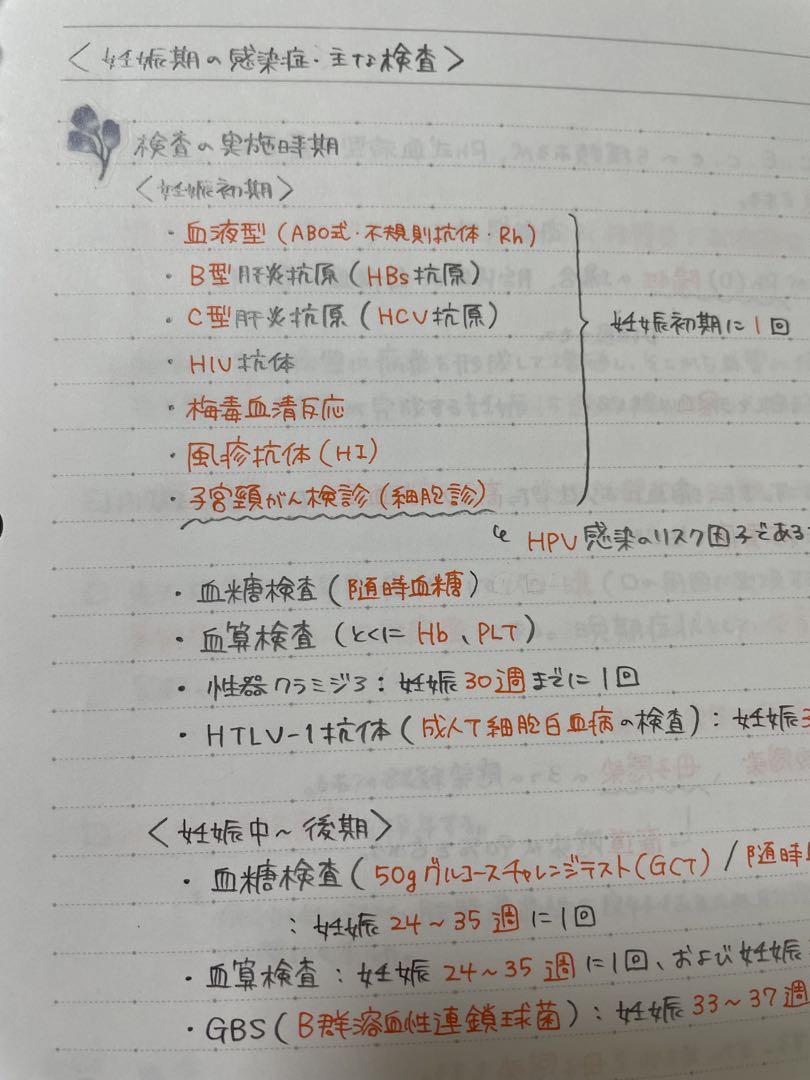 〈妊娠期の感染症・主な検査〉
検査の実施時期
〈妊娠初期〉
・血液型(ABO式・不規則抗体・Rh)
・B型肝炎抗原(HBs抗原)
・C型肝炎抗原(HCV抗原)
妊娠初期に1回
・HIV抗体
・梅毒血清反応
・風疹抗体(HI)
・子宮頸がん検診(細胞診)
HPV感染のリスク因子である
・血糖検査(随時血糖)
・血算検査(とくにHb、PLT)
・性器クラミジア:妊娠30週までに1回
・HTLV-1抗体(成人T細胞白血病の検査):妊娠3
〈妊娠中~後期〉
・血糖検査(50gグルコースチャレンジテスト(GCT)/随時
:妊娠24~35週に1回
・血算検査:妊娠24~35週に1回、および妊娠
・GBS(B群溶血性連鎖球菌):妊娠33~37週